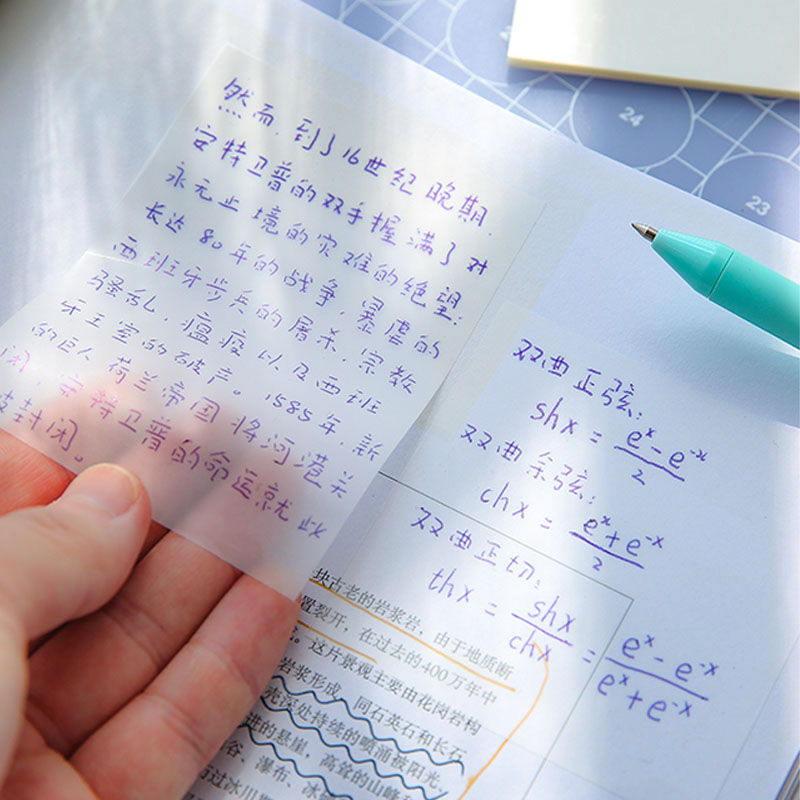 然而,到了16世纪晚期.
安特卫普的双手握满了对
永无止境的灾难的绝望:
长达80年的战争,暴虐的
西班牙步兵的屠杀,宗教
骚乱,瘟疫以及西班
牙王室的破产。1585年,新
的巨人荷兰帝国将河港关
闭,安特卫普的命运就此
被封闭。
双曲正弦:
shx = (e^x - e^-x)/2
双曲余弦:
chx = (e^x + e^-x)/2
双曲正切:
thx = shx/chx = (e^x - e^-x)/(e^x + e^-x)
块古老的岩浆岩,由于地质断
置裂开,在过去的400万年中
。这片景观主要由花岗岩构
岩浆形成,同石英石和长石
壳深处持续的喷涌被阳光、
进的悬崖、高耸的山峰
谷、瀑布、冰
过冰川
24
23